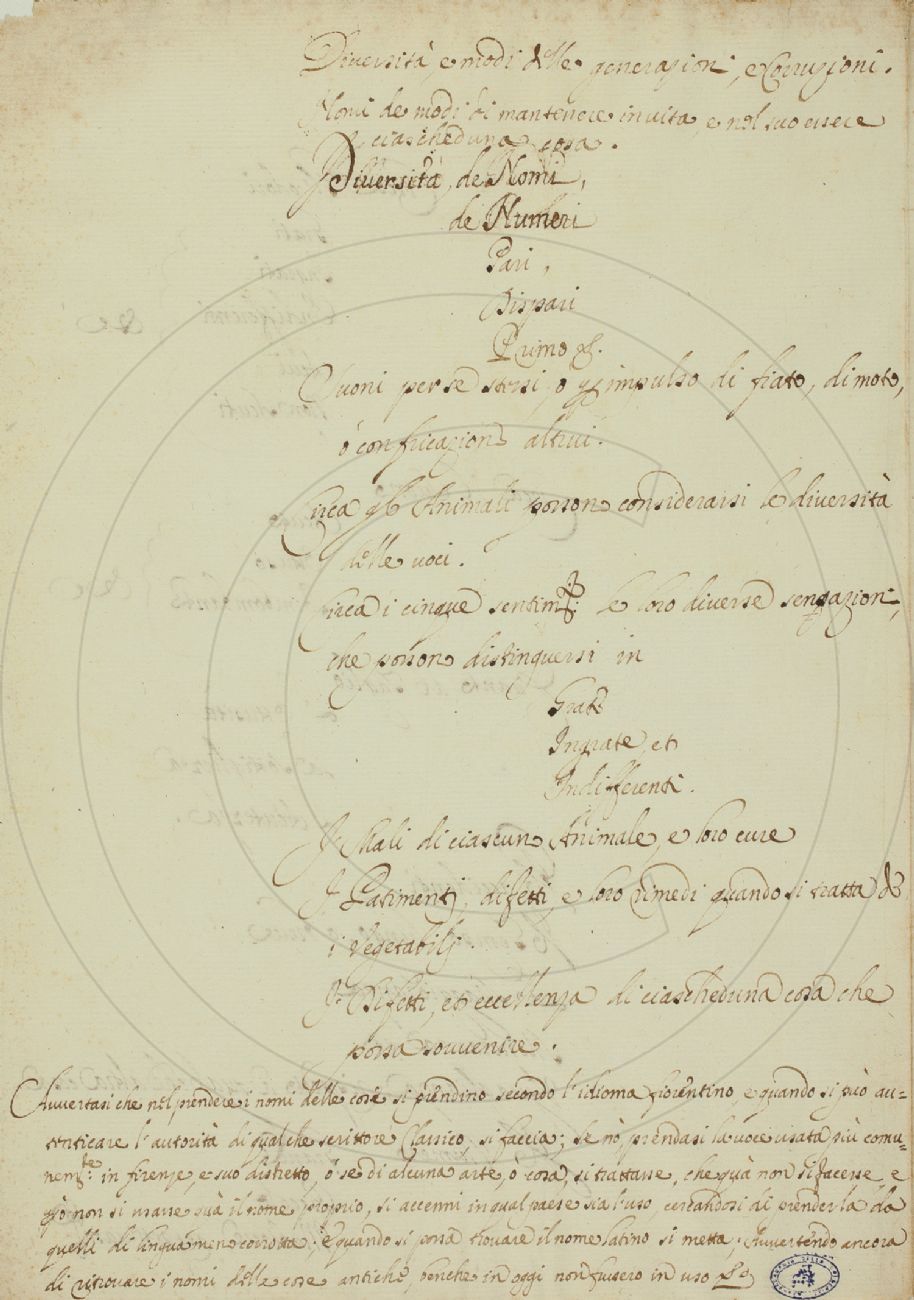 Diversità, e modi delle generazioni, e Corruzioni.
Nomi de modi di mantenere in vita, e nel suo essere
ciascheduna cosa.
Diversità, de Nomi,
de Numeri
Pari,
Dispari
Primo &c.
Suoni per se stessi, o p impulso di fiato, di moto,
ò confricazione altrui.
Circa gli Animali posson considerarsi le diversità
delle voci.
Circa i cinque sentimti: le loro diverse sensazioni,
che posson distinguersi in
Grate
Ingrate, et
Indifferenti.
I Mali di ciascun Animale, e loro cure
I Patimenti, difetti, e loro rimedi quando si tratta de
i Vegetabili.
I Difetti, et eccellenza di ciascheduna cosa che
possa souvenire.
Avvertasi che nel prendere i nomi delle cose si prendino secondo l'idioma fiorentino, e quando si può au=
tenticare l'autorità di qualche scrittore Classico, si faccia; se nò, prendasi la voce usata più comu=
nemte: in firenze, e suo distretto, ò se di alcuna arte, ò cosa, si trattasse, che quà non si facesse, e
pciò non si usasse quà il nome proprio, si accenni in qual paese sia l'uso, cercandosi di prenderla da
quelli di lingua meno corrotta; e quando si possa trovare il nome latino si metta; Avvertendo ancora
di ritrovare i nomi delle cose antiche, benche in oggi non fussero in uso &c